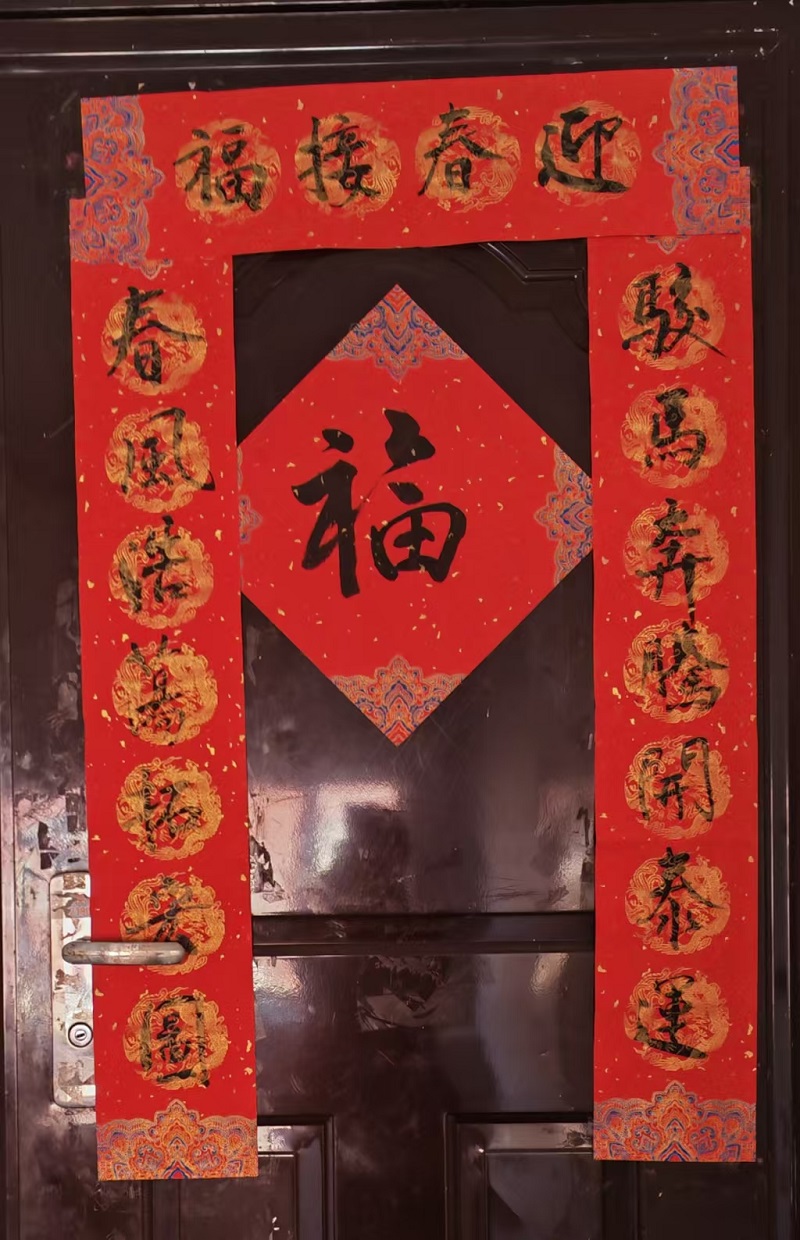 迎春接福
駿馬奔騰開泰運
春風浩蕩拓宏圖
福